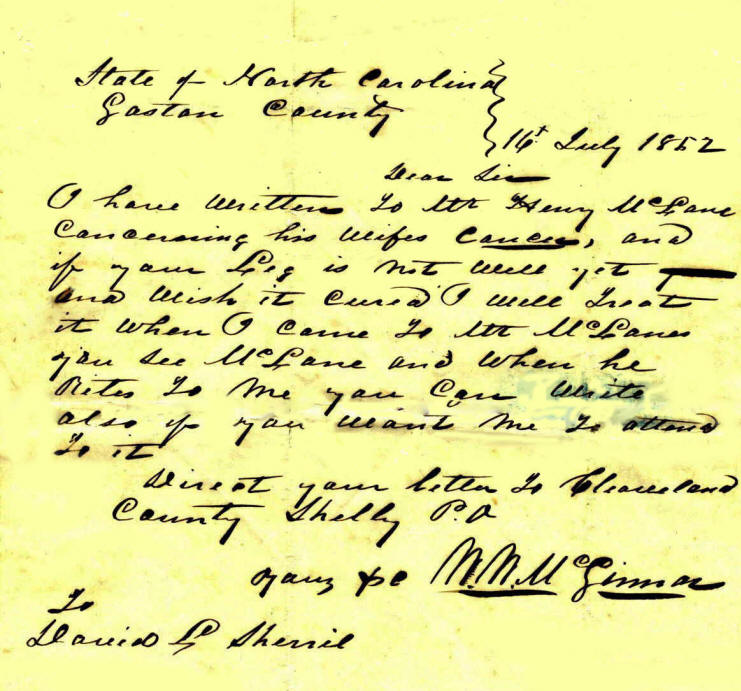 State of North Carolina
Gaston County
16t July 1852
Dear Sir
I have Written To Mr Henry McLane
Concerning his Wifes Cancer, and
if your Leg is Not Well yet
and Wish it Cured I Will Treat
it When I Come To Mr McLanes
you See McLane and When he
Rites To Me you Can Write
also if you Want Me To attend
To it
Direct your letter To Cleaveland
County Shelby P.O
yours &c W. W. McGinnas
To
David G Sherril